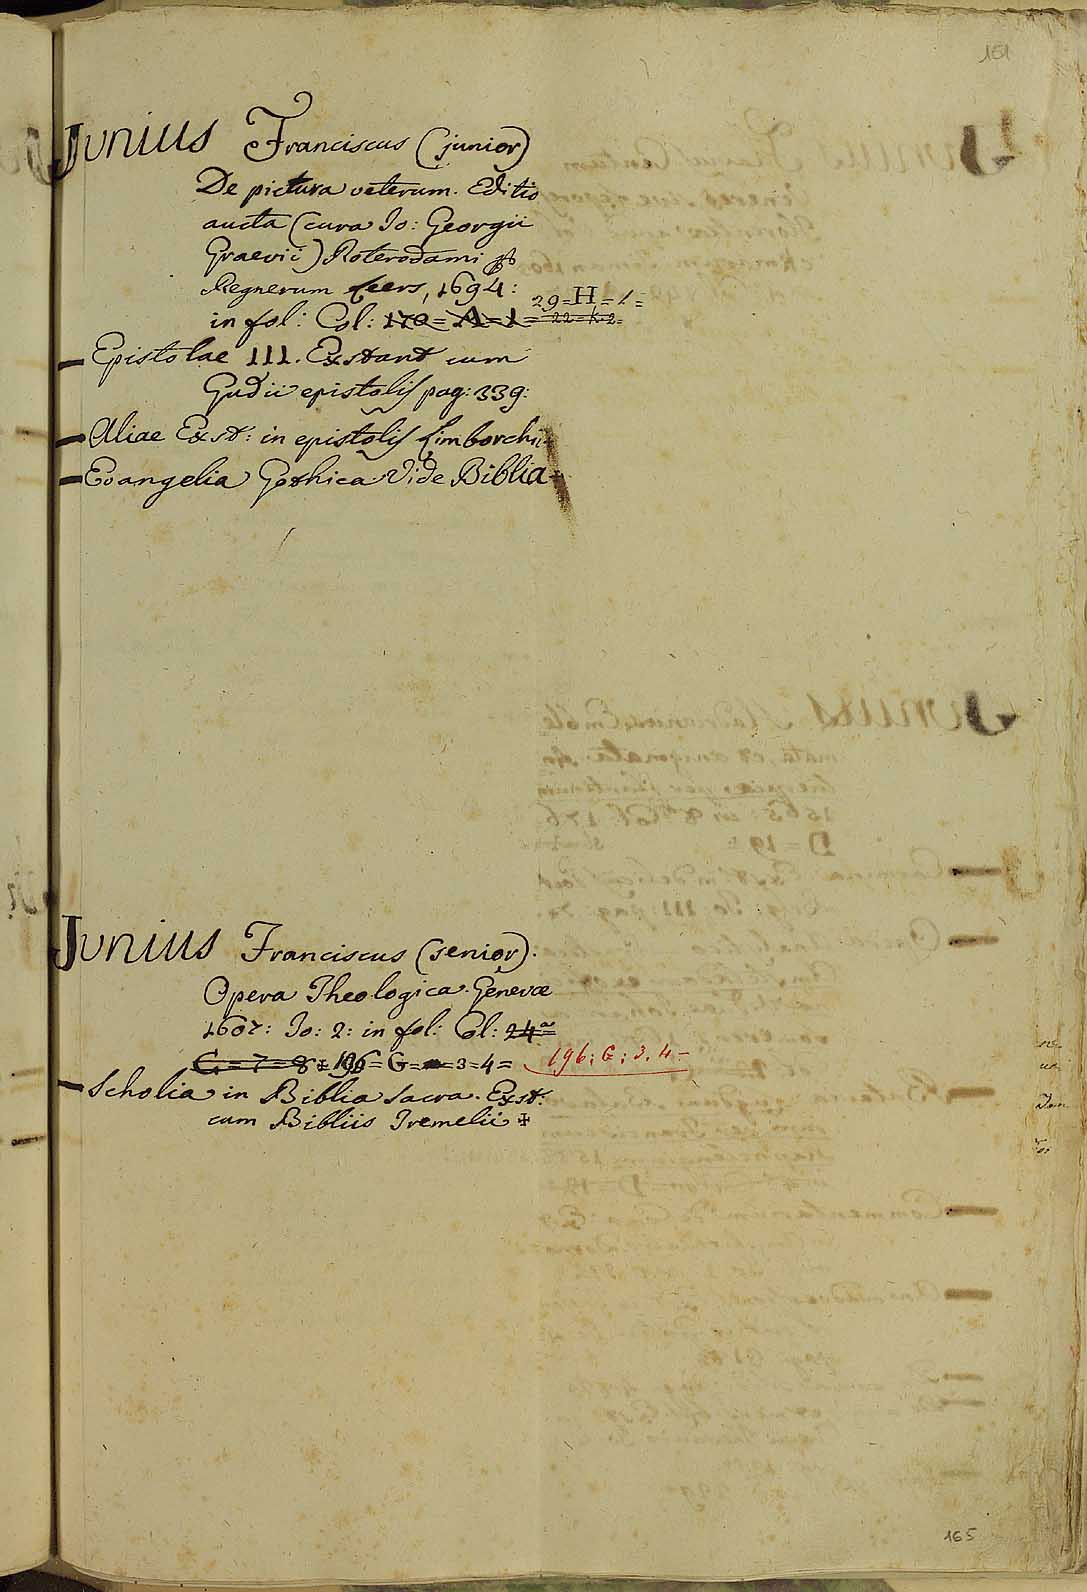 151
Junius Franciscus (junior)
De pictura veterum. Editio
aucta (cura Io: Georgii
Graevii) Roterodami
Regnerum Leers, 1694:
29=H=1=
in fol: Col: 170=A=1=22=k-2=
Epistolae III. Exstant cum
Gudii epistolis pag: 339:
Aliae Exst: in epistolis Limborchii
Evangelia Gothica Vide Biblia
Junius Franciscus (senior).
Opera Theologica. Genevae
1607: To: 2: in fol: Col: 24=
G=7=8 196=G=3=4= 196: G: 3. 4-
Scholia in Biblia Sacra. Exst:
cum Bibliis Tremelii
165